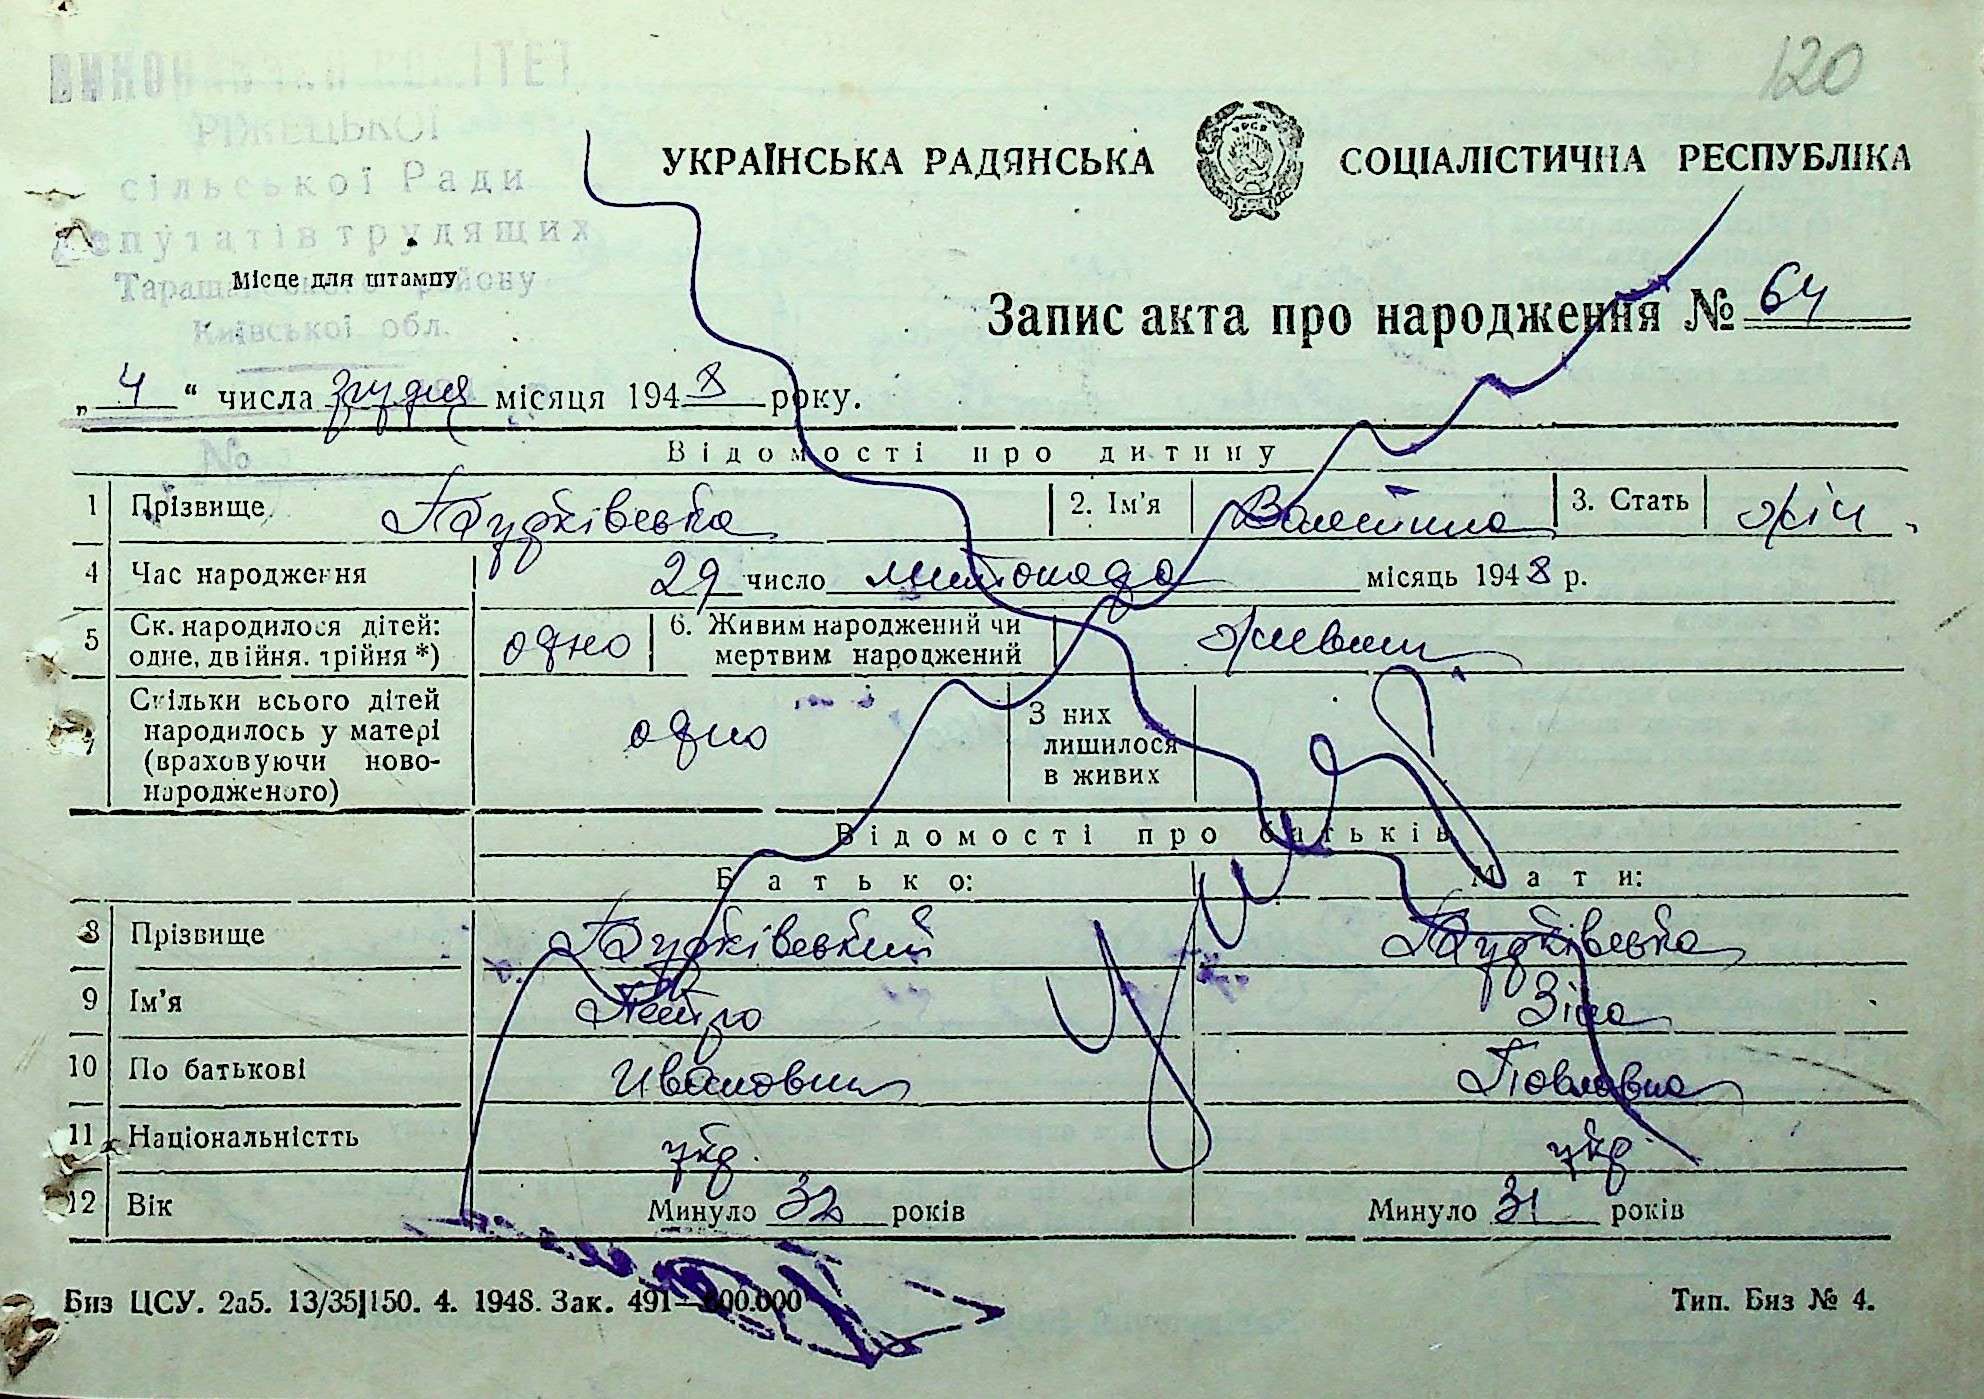 120
ВИКОНАВЧИЙ КОМІТЕТ
РІЖЕЦЬКОЇ
сільської Ради
депутатів трудящих
Таращанського району
Київської обл.
№
Місце для штампу
УКРАЇНСЬКА РАДЯНСЬКА СОЦІАЛІСТИЧНА РЕСПУБЛІКА
Запис акта про народження № 64
„ 4 “ числа грудня місяця 1948 року.
Відомості про дитину
1 Прізвище Будківська 2. Ім'я Валентина 3. Стать жін.
4 Час народження 29 число листопада місяць 1948 р.
5 Ск. народилося дітей: одне, двійня, трійня *) одно 6. Живим народжений чи мертвим народжений живим
7 Скільки всього дітей народилось у матері (враховуючи новонародженого) одно З них лишилося в живих
Відомості про батьків
Батько: Мати:
8 Прізвище Будківський Будківська
9 Ім'я Петро Зіна
10 По батькові Иванович Павловна
11 Національністть укр. укр.
12 Вік Минуло 32 років Минуло 31 років
Биз ЦСУ. 2а5. 13/35|150. 4. 1948. Зак. 491—600.000 Тип. Биз № 4.